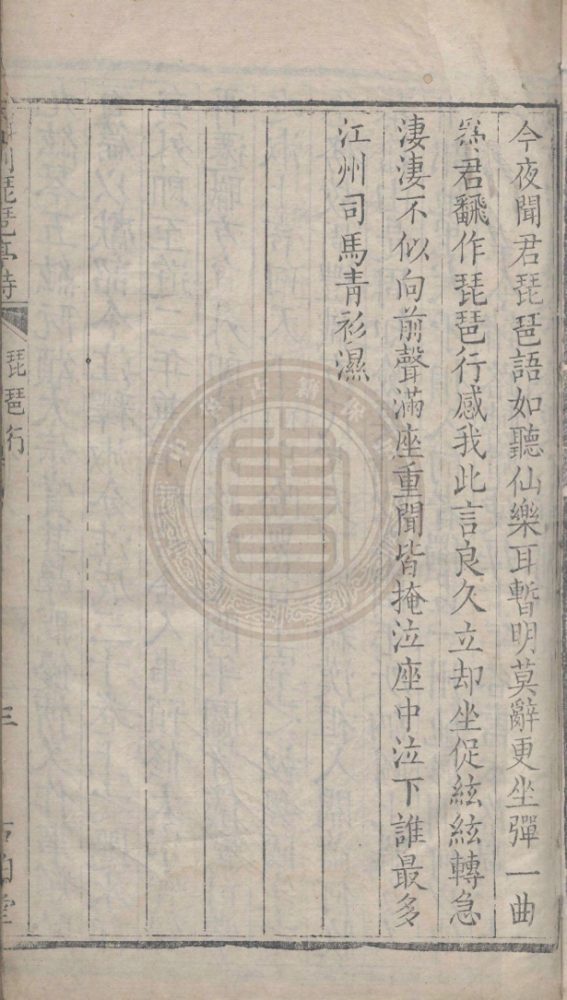 今夜聞君琵琶語如聽仙樂耳暫明莫辭更坐彈一曲
君飜作琵琶行感我此言良久立却坐促絃絃轉急
淒淒不似向前聲滿座重聞皆掩泣座中泣下誰最多
江州司馬青衫濕
琵琶亭詩
琵琶行
三